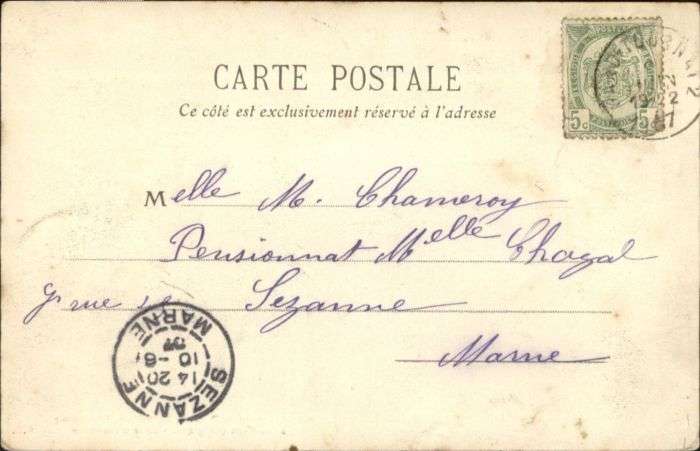 CARTE POSTALE
Ce côté est exclusivement réservé à l'adresse
5c 5c
Melle M. Chameroy
Pensionnat Melle Chogal
rue
Sezanne
Marne
SEZANNE
14 20
10 - 6
07
MARNE